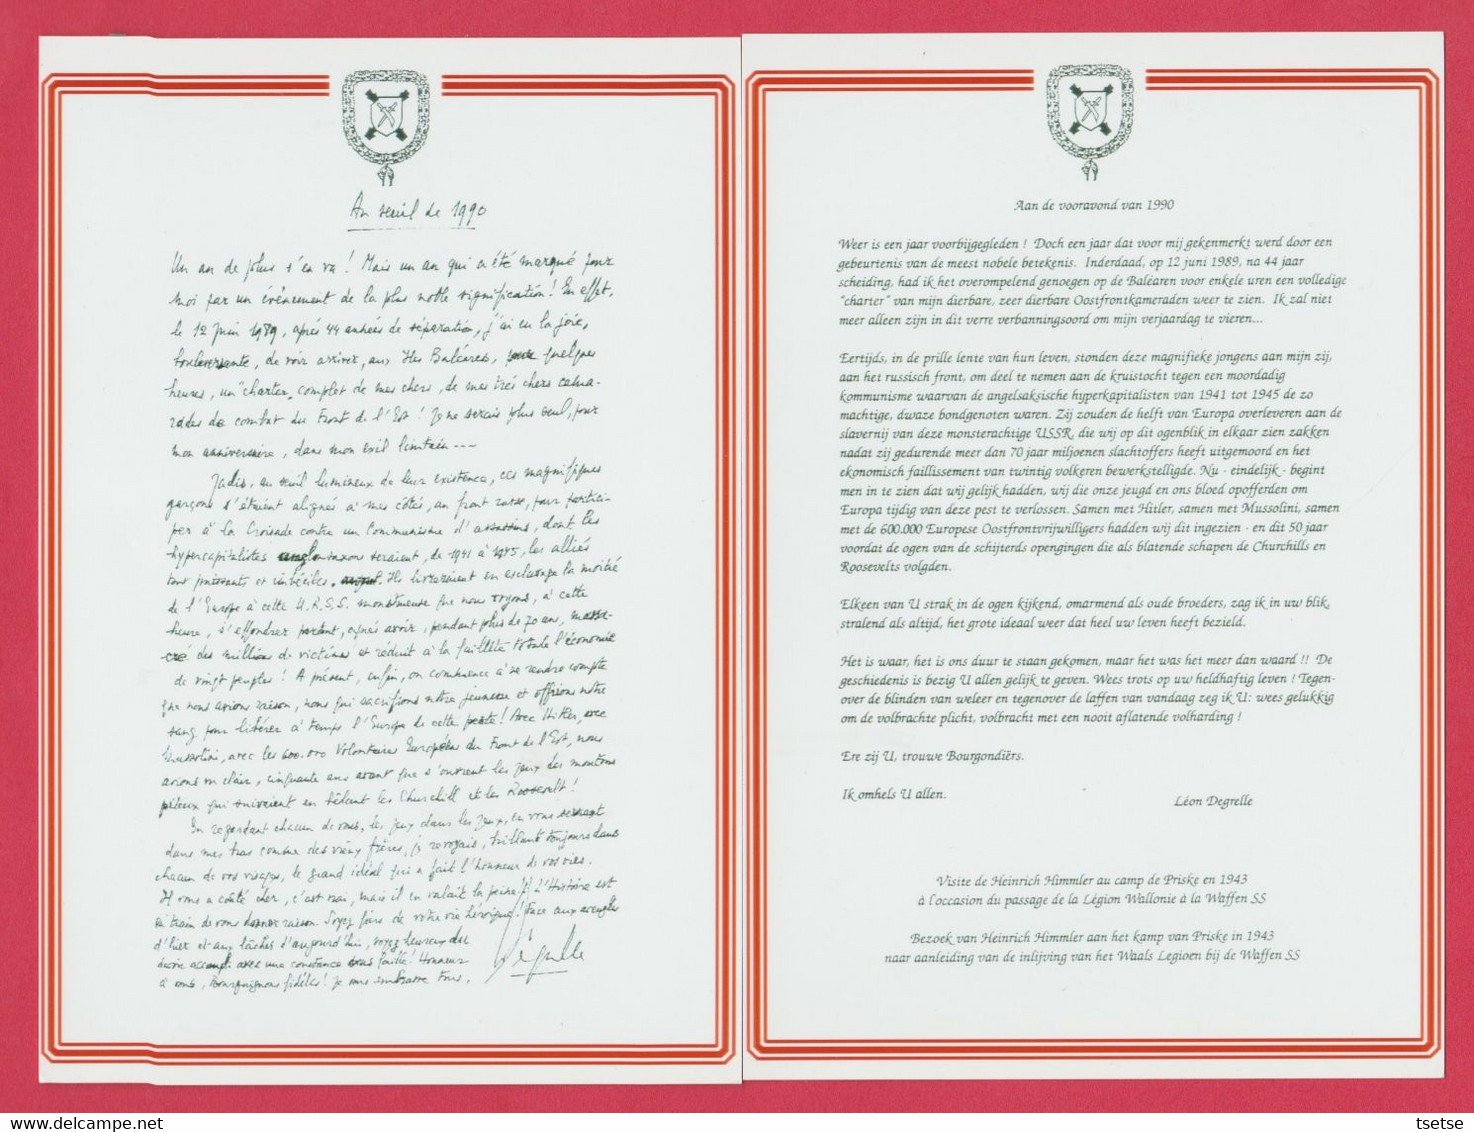 Au seuil de 1990
Un an de plus s'en va ! Mais un an qui a été marqué pour
moi par un événement de la plus noble signification ! En effet,
le 12 juin 1989, après 44 années de séparation, j'ai eu la joie,
bouleversante, de voir arriver, aux Iles Baléares, pour quelques
heures, un "charter" complet de mes chers, de mes très chers cama-
rades de combat du Front de l'Est ! Je ne serais plus seul, pour
mon anniversaire, dans mon exil lointain ---
Jadis, au seuil lumineux de leur existence, ces magnifiques
garçons s'étaient alignés à mes côtés, au front russe, pour partici-
per à la Croisade contre un Communisme d'assassins, dont les
hypercapitalistes anglosaxons seraient, de 1941 à 1945, les alliés
tout puissants et imbéciles. Ils livreraient en esclavage la moitié
de l'Europe à cette U.R.S.S. monstrueuse que nous voyons, à cette
heure, s'effondrer partout, après avoir, pendant plus de 70 ans, massa-
cré des millions de victimes et réduit à la faillite totale l'économie
de vingt peuples ! A présent, enfin, on commence à se rendre compte
que nous avions raison, nous qui sacrifiions notre jeunesse et offrions notre
sang pour libérer à temps l'Europe de cette peste ! Avec Hitler, avec
Mussolini, avec les 600.000 Volontaires Européens du Front de l'Est, nous
avions vu clair, cinquante ans avant que s'ouvrent les yeux des moutons
péteux qui suivaient en bêlant les Churchill et les Roosevelt !
En regardant chacun de vous, les yeux dans les yeux, en vous serrant
dans mes bras comme des vieux frères, je revoyais, brillant toujours dans
chacun de vos visages, le grand idéal qui a fait l'honneur de vos vies.
Il vous a coûté cher, c'est vrai, mais il en valait la peine !! L'Histoire est
en train de vous donner raison. Soyez fiers de votre vie héroïque ! Face aux aveugles
d'hier et aux lâches d'aujourd'hui, soyez heureux du
devoir accompli avec une constance sans faille ! Honneur
à vous, Bourguignons fidèles ! Je vous embrasse tous.
Degrelle
Aan de vooravond van 1990
Weer is een jaar voorbijgegleden ! Doch een jaar dat voor mij gekenmerkt werd door een
gebeurtenis van de meest nobele betekenis. Inderdaad, op 12 juni 1989, na 44 jaar
scheiding, had ik het overompelend genoegen op de Balearen voor enkele uren een volledige
"charter" van mijn dierbare, zeer dierbare Oostfrontkameraden weer te zien. Ik zal niet
meer alleen zijn in dit verre verbanningsoord om mijn verjaardag te vieren...
Eertijds, in de prille lente van hun leven, stonden deze magnifieke jongens aan mijn zij,
aan het russisch front, om deel te nemen aan de kruistocht tegen een moordadig
kommunisme waarvan de angelsaksische hyperkapitalisten van 1941 tot 1945 de zo
machtige, dwaze bondgenoten waren. Zij zouden de helft van Europa overleveren aan de
slavernij van deze monsterachtige USSR, die wij op dit ogenblik in elkaar zien zakken
nadat zij gedurende meer dan 70 jaar miljoenen slachtoffers heeft uitgemoord en het
ekonomisch faillissement van twintig volkeren bewerkstelligde. Nu - eindelijk - begint
men in te zien dat wij gelijk hadden, wij die onze jeugd en ons bloed opofferden om
Europa tijdig van deze pest te verlossen. Samen met Hitler, samen met Mussolini, samen
met de 600.000 Europese Oostfrontvrijwilligers hadden wij dit ingezien - en dit 50 jaar
voordat de ogen van de schijterds opengingen die als blatende schapen de Churchills en
Roosevelts volgden.
Elkeen van U strak in de ogen kijkend, omarmend als oude broeders, zag ik in uw blik,
stralend als altijd, het grote ideaal weer dat heel uw leven heeft bezield.
Het is waar, het is ons duur te staan gekomen, maar het was het meer dan waard !! De
geschiedenis is bezig U allen gelijk te geven. Wees trots op uw heldhaftig leven ! Tegen-
over de blinden van weleer en tegenover de laffen van vandaag zeg ik U: wees gelukkig
om de volbrachte plicht, volbracht met een nooit aflatende volharding !
Ere zij U, trouwe Bourgondiërs.
Ik omhels U allen.
Léon Degrelle
Visite de Heinrich Himmler au camp de Priske en 1943
à l'occasion du passage de la Légion Wallonie à la Waffen SS
Bezoek van Heinrich Himmler aan het kamp van Priske in 1943
naar aanleiding van de inlijving van het Waals Legioen bij de Waffen SS
tsetse